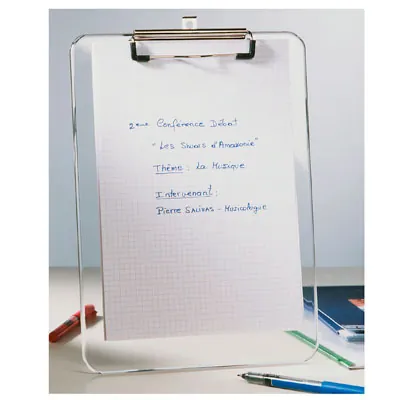 2eme Conférence Débat
"Les Salons d'Amazonie"
Thème : La Musique
Intervenant :
Pierre SALIVAS - Musicologue